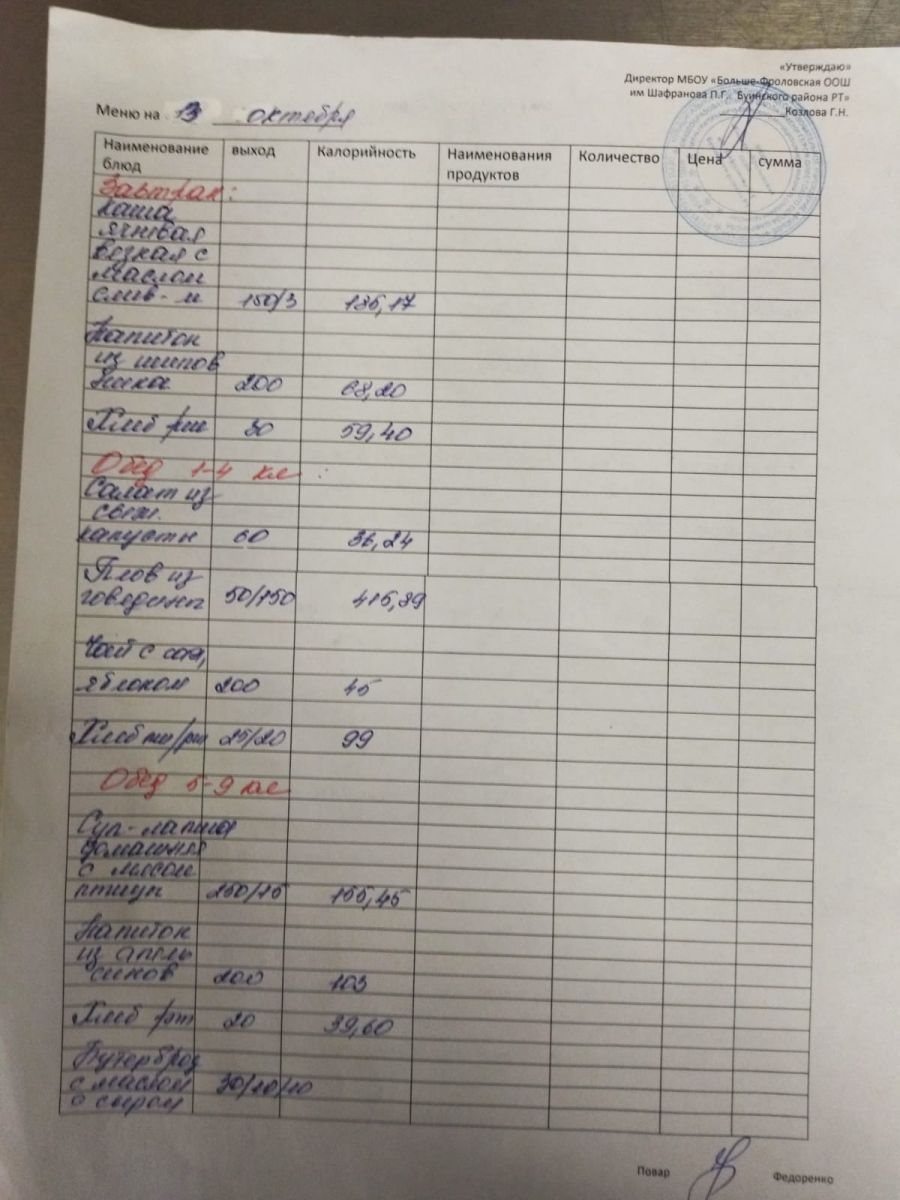 «Утверждаю»
Директор МБОУ «Больше-Фроловская ООШ
им Шафранова П.Г. Буинского района РТ»
Козлова Г.Н.
Меню на 13 октября
Наименование блюд выход Калорийность Наименования продуктов Количество Цена сумма
Завтрак:
Каша
ячневая
вязкая с
маслом
слив-м 150/3 136,17
Напиток
из шипов
ника 200 68,20
Хлеб рж 30 59,40
Обед 1-4 кл :
Салат из
свеж.
капусты 60 36,24
Плов из
говядины 50/150 416,89
Чай с сах,
яблоком 200 45
Хлеб пш/рж 25/20 99
Обед 5-9 кл
Суп-лапша
домашняя
с мясом
птицы 250/15 155,45
Напиток
из апель
синов 200 103
Хлеб 20 39,60
Бутерброд
с маслом 30/10/10
о сыром
Повар Федоренко